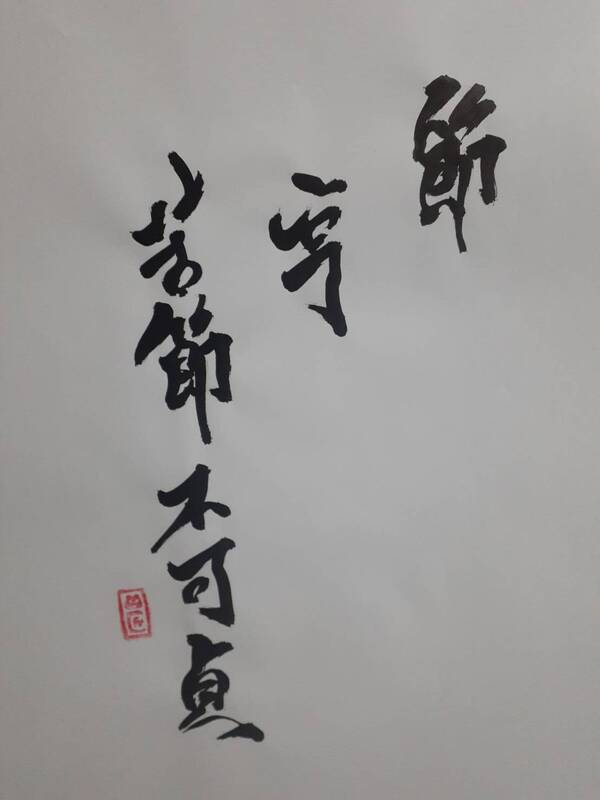 節
亨
苦節不可貞